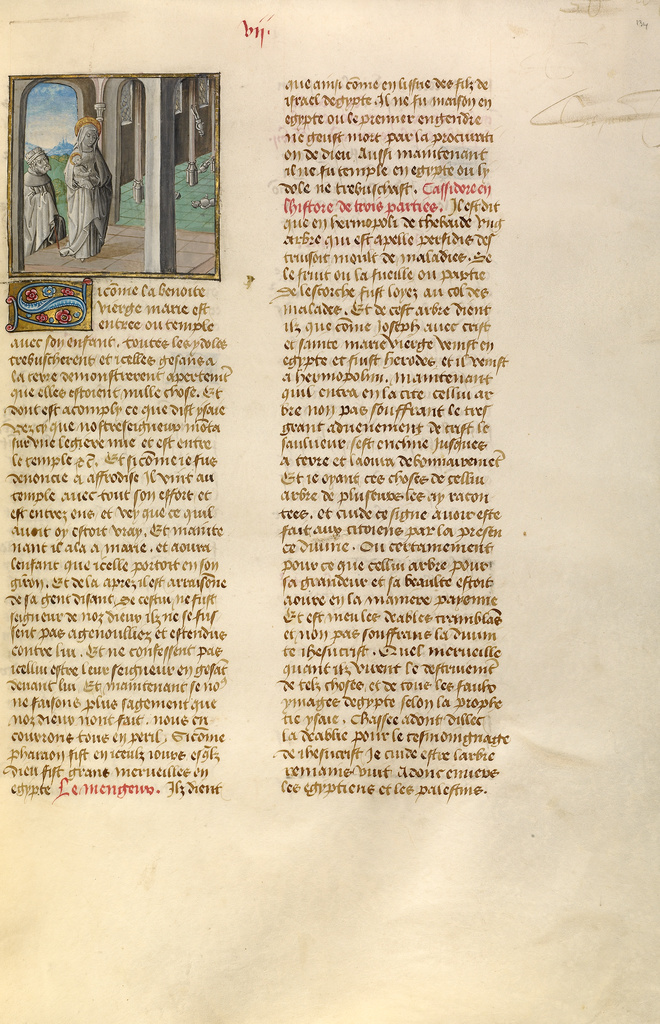 vii.
134
Sicōme la benoite
vierge marie est
entree ou temple
avec son enfant. toutes les ydoles
trebuscherent et icelles gesans a
la terre demonstrerent apertemēt
que elles estoient nulle chose. Et
dont est acomply ce que dist ysaie
Vezcy que nostreseigneur mōta
sur une legiere nue et est entre
le temple Et sicōme ie fus
denoncie a affrodise Il vint au
temple avec tout son effort et
est entrez ens et vey que ce quil
avoit oy estoit vray. Et mainte
nant il ala a marie. et aoura
lenfant que icelle portoit en son
giron. Et de la aprez il est arraisōne
de sa gent disant. Se cestui ne fust
seigneur de noz dieux ilz ne se fus
sent pas agenoulliez et estendus
contre lui. Et ne confessent pas
icellui estre leur seigneur en gesāt
devant lui Et maintenant se no9
ne faisons plus sagement que
noz dieux nont fait. nous en
courrons tous en peril. Sicōme
pharaon fist en iceulx iours esq̄lz
dieu fist grans merveilles en
egypte Le mengeur. Ilz dient
que ainsi cōme en lissue des filz de
israel degypte Il ne fu maison en
egypte ou le premier engendre
ne geust mort par la procurati
on de dieu Aussi maintenant
il ne fu temple en egypte ou ly
dole ne trebuschast. Cassidore en
lhistore de trois parties. Il est dit
que en hermopoli de thebaide ung
arbre qui est apelle persidis des
truisoit moult de maladies. Se
le fruit ou la fueille ou partie
de lescorche fust loyez au col des
malades. Et de cest arbre dient
ilz que cōme Joseph avec crist
et sainte marie vierge venist en
egypte et fuist herodes et il venist
a hermopolim. maintenant
quil entra en la cite cellui ar
bre non pas souffrant le tres
grant advenement de crist le
saulveur sest encline jusques
a terre et laoura debonnairemēt
Et ie oyans ces choses de cellui
arbre de pluseurs les ay racon
tees. et cuide ce signe avoir este
fait aux citoiens par la presen
ce divine. Ou certainement
pour ce que cellui arbre pour
sa grandeur et sa beaulte estoit
aoure en la maniere payenne
Et est meu les deables tramblās
et non pas souffrans la divini
te ihesucrist. Quel merveille
quant ilz virent le destruiemēt
de telz choses, et de tous les faulx
ymages degypte selon la prophe
tie ysaie. Chassee adont dillec
la deablie pour le tesmoingnage
de ihesucrist Je cuide estre larbre
remains vivit adonc envers
les egyptiens et les palestins.